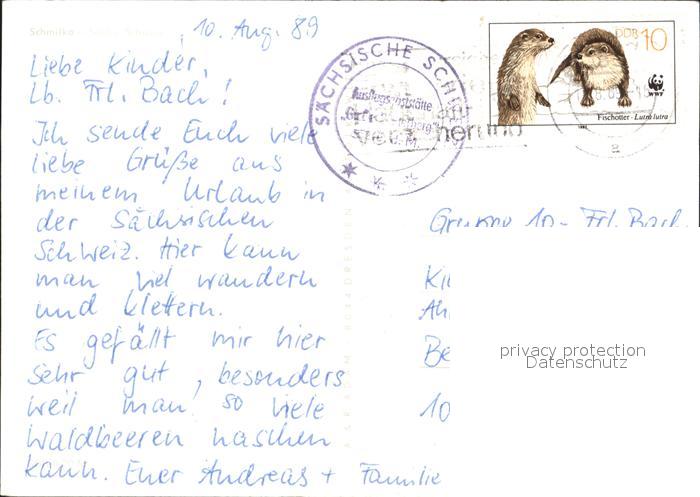 Schmilka
10. Aug. 89
Liebe Kinder,
Lb. Frl. Bach!
Ich sende Euch viele
liebe Grüße aus
meinem Urlaub in
der Sächsischen
Schweiz. Hier kann
man viel wandern
und klettern.
Es gefällt mir hier
sehr gut, besonders
weil man so viele
Waldbeeren naschen
kann. Euer Andreas + Familie
SÄCHSISCHE
Ausflugsgaststätte
DDR 10
WWF
Fischotter · Lutra lutra
Gruppe 10 - Frl. Bach
Ki
Ah
Be
10
privacy protection
Datenschutz